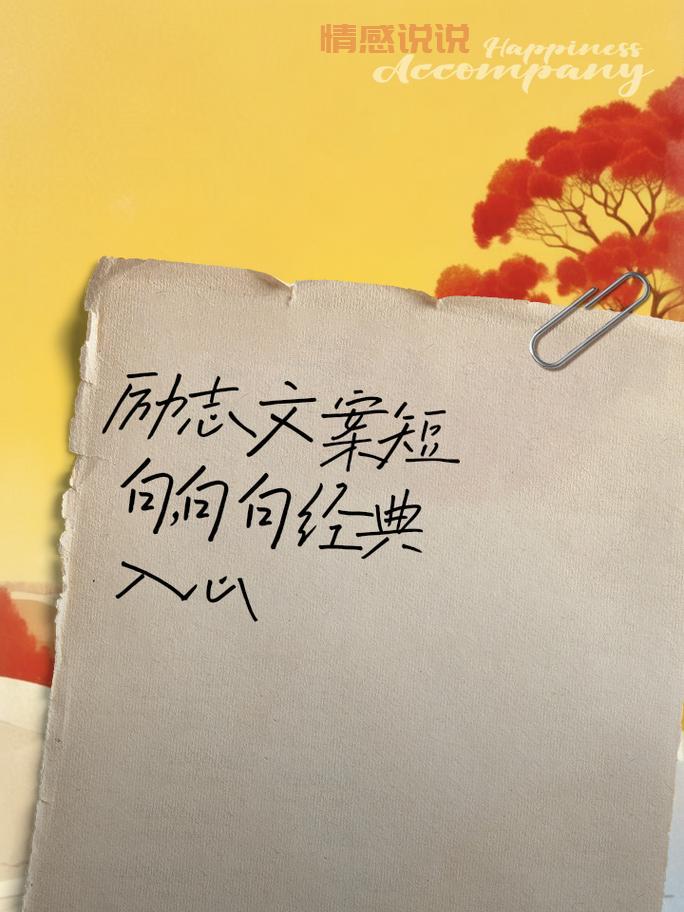 情感说说
Happiness
Accompany
励志文案短
句,句句经典
入心